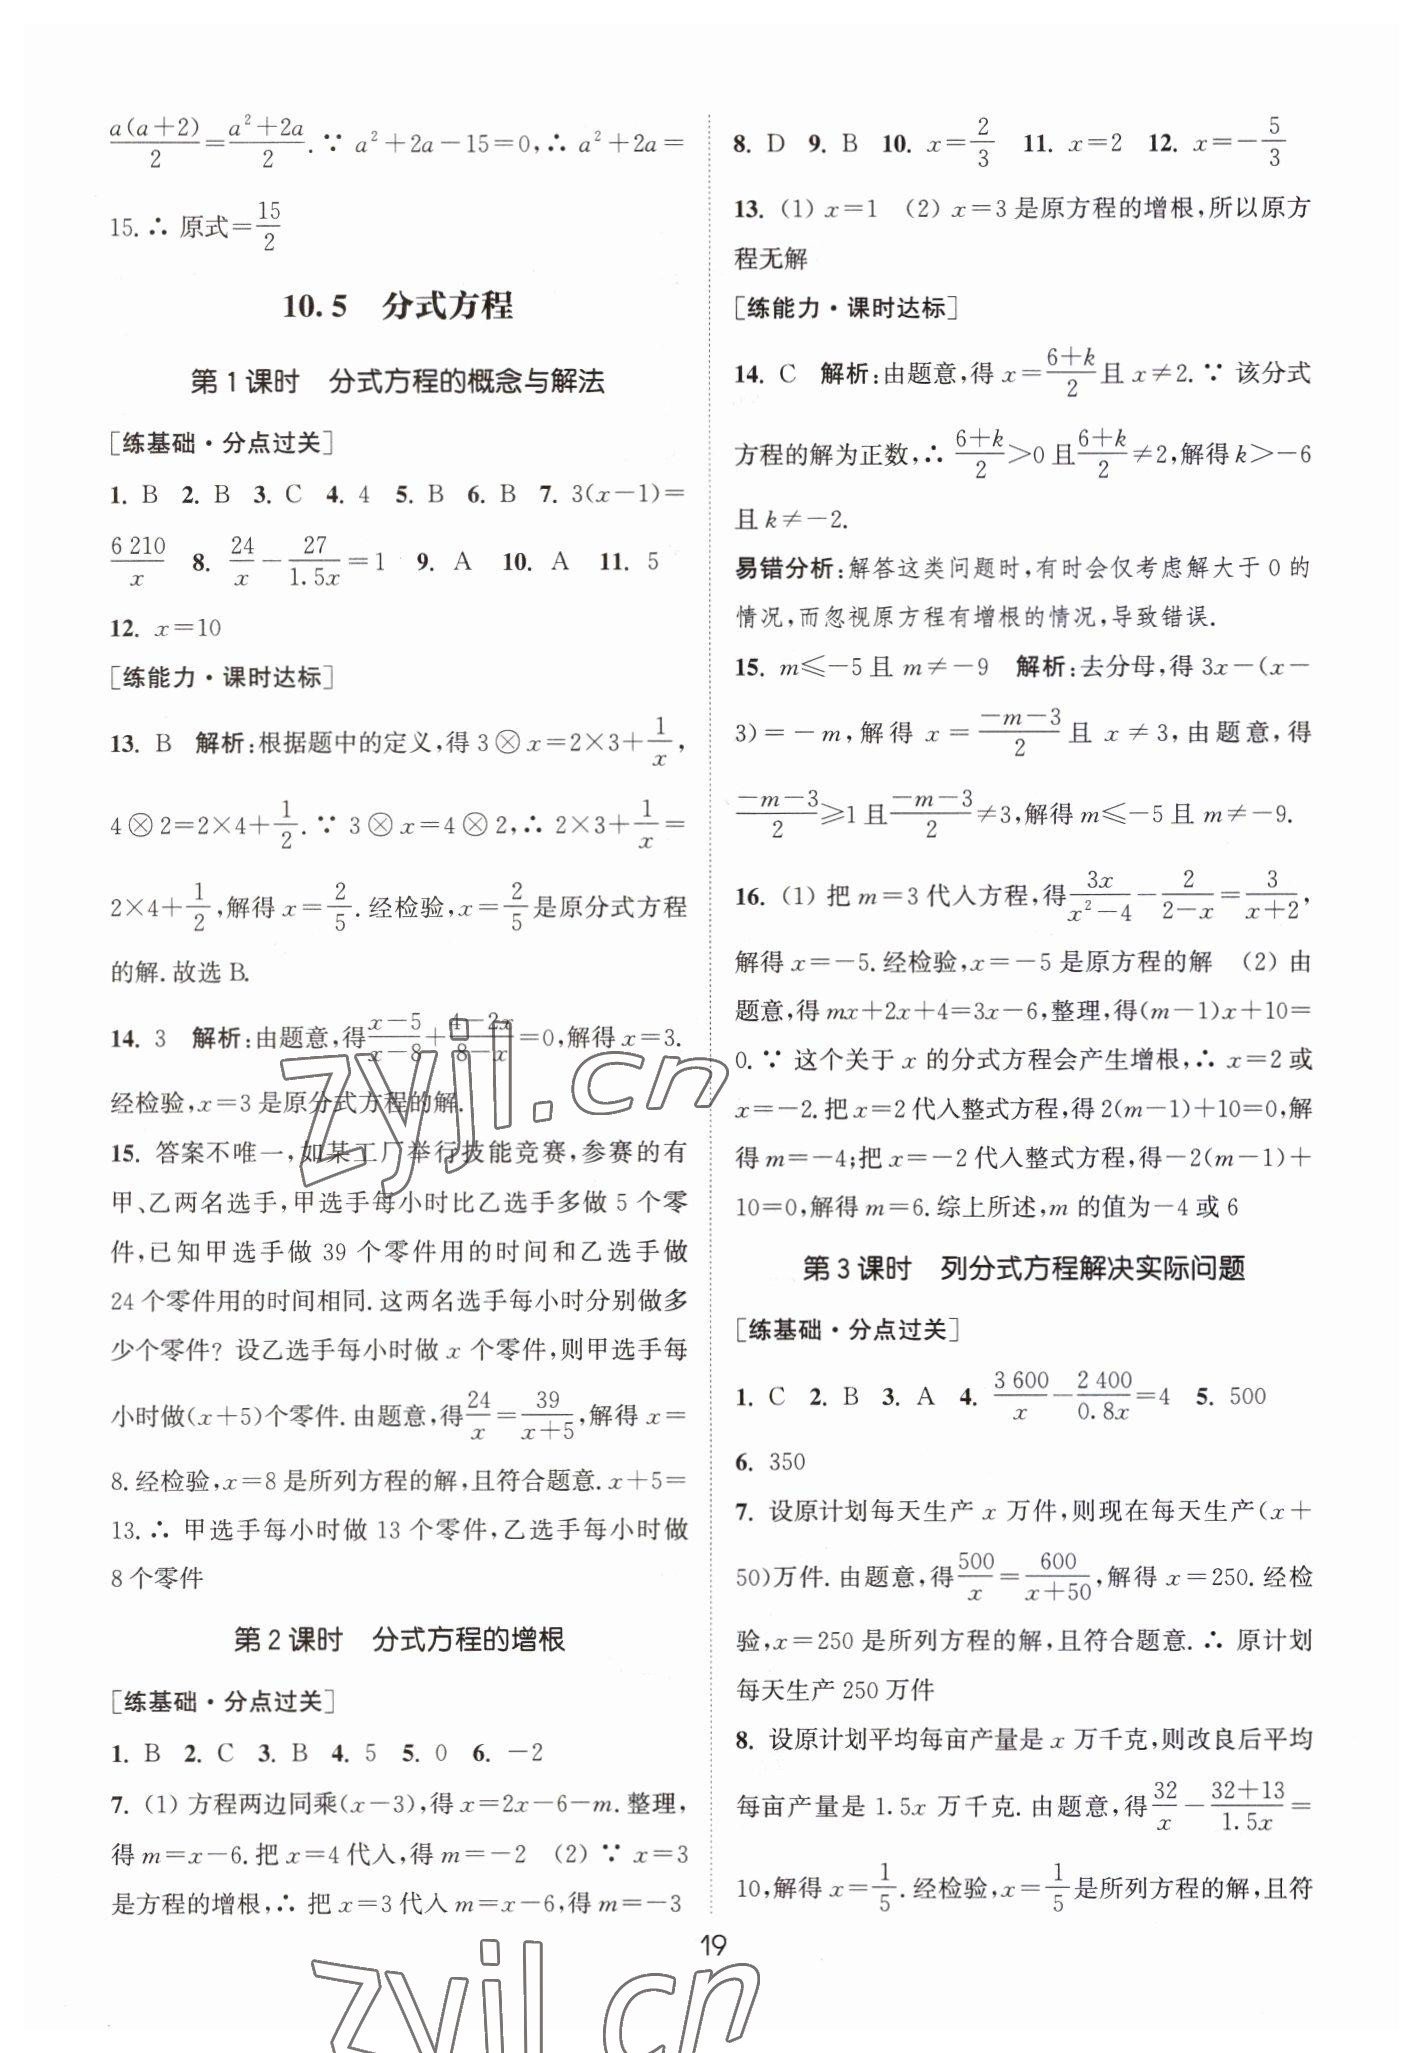 a(a+2)/2=(a²+2a)/2.∵ a²+2a-15=0,∴ a²+2a=
15.∴ 原式=15/2
10.5 分式方程
第1课时 分式方程的概念与解法
[练基础·分点过关]
1. B 2. B 3. C 4. 4 5. B 6. B 7. 3(x-1)=
6 210/x 8. 24/x-27/1.5x=1 9. A 10. A 11. 5
12. x=10
[练能力·课时达标]
13. B 解析:根据题中的定义,得 3⊗x=2×3+1/x,
4⊗2=2×4+1/2.∵ 3⊗x=4⊗2,∴ 2×3+1/x=
2×4+1/2,解得 x=2/5.经检验,x=2/5是原分式方程
的解.故选 B.
14. 3 解析:由题意,得(x-5)/(x-8)+(4-2x)/(8-x)=0,解得 x=3.
经检验,x=3 是原分式方程的解.
15. 答案不唯一,如某工厂举行技能竞赛,参赛的有
甲、乙两名选手,甲选手每小时比乙选手多做 5 个零
件,已知甲选手做 39 个零件用的时间和乙选手做
24 个零件用的时间相同.这两名选手每小时分别做多
少个零件? 设乙选手每小时做 x 个零件,则甲选手每
小时做(x+5)个零件.由题意,得24/x=39/(x+5),解得 x=
8.经检验,x=8 是所列方程的解,且符合题意.x+5=
13.∴ 甲选手每小时做 13 个零件,乙选手每小时做
8 个零件
第2课时 分式方程的增根
[练基础·分点过关]
1. B 2. C 3. B 4. 5 5. 0 6. -2
7. (1) 方程两边同乘(x-3),得 x=2x-6-m.整理,
得 m=x-6.把 x=4 代入,得 m=-2 (2) ∵ x=3
是方程的增根,∴ 把 x=3 代入 m=x-6,得 m=-3
8. D 9. B 10. x=2/3 11. x=2 12. x=-5/3
13. (1) x=1 (2) x=3 是原方程的增根,所以原方
程无解
[练能力·课时达标]
14. C 解析:由题意,得 x=(6+k)/2且 x≠2.∵ 该分式
方程的解为正数,∴ (6+k)/2>0 且(6+k)/2≠2,解得 k>-6
且 k≠-2.
易错分析:解答这类问题时,有时会仅考虑解大于 0 的
情况,而忽视原方程有增根的情况,导致错误.
15. m≤-5 且 m≠-9 解析:去分母,得 3x-(x-
3)=-m,解得 x=(-m-3)/2 且 x≠3,由题意,得
(-m-3)/2≥1 且(-m-3)/2≠3,解得 m≤-5 且 m≠-9.
16. (1) 把 m=3 代入方程,得3x/(x²-4)-2/(2-x)=3/(x+2),
解得 x=-5.经检验,x=-5 是原方程的解 (2) 由
题意,得 mx+2x+4=3x-6,整理,得(m-1)x+10=
0.∵ 这个关于 x 的分式方程会产生增根,∴ x=2 或
x=-2.把 x=2 代入整式方程,得 2(m-1)+10=0,解
得 m=-4;把 x=-2 代入整式方程,得-2(m-1)+
10=0,解得 m=6.综上所述,m 的值为-4 或 6
第3课时 列分式方程解决实际问题
[练基础·分点过关]
1. C 2. B 3. A 4. 3 600/x-2 400/0.8x=4 5. 500
6. 350
7. 设原计划每天生产 x 万件,则现在每天生产(x+
50)万件.由题意,得500/x=600/(x+50),解得 x=250.经检
验,x=250 是所列方程的解,且符合题意.∴ 原计划
每天生产 250 万件
8. 设原计划平均每亩产量是 x 万千克,则改良后平均
每亩产量是 1.5x 万千克.由题意,得32/x-(32+13)/1.5x=
10,解得 x=1/5.经检验,x=1/5是所列方程的解,且符
19
zyjl.cn
zyjl.cn